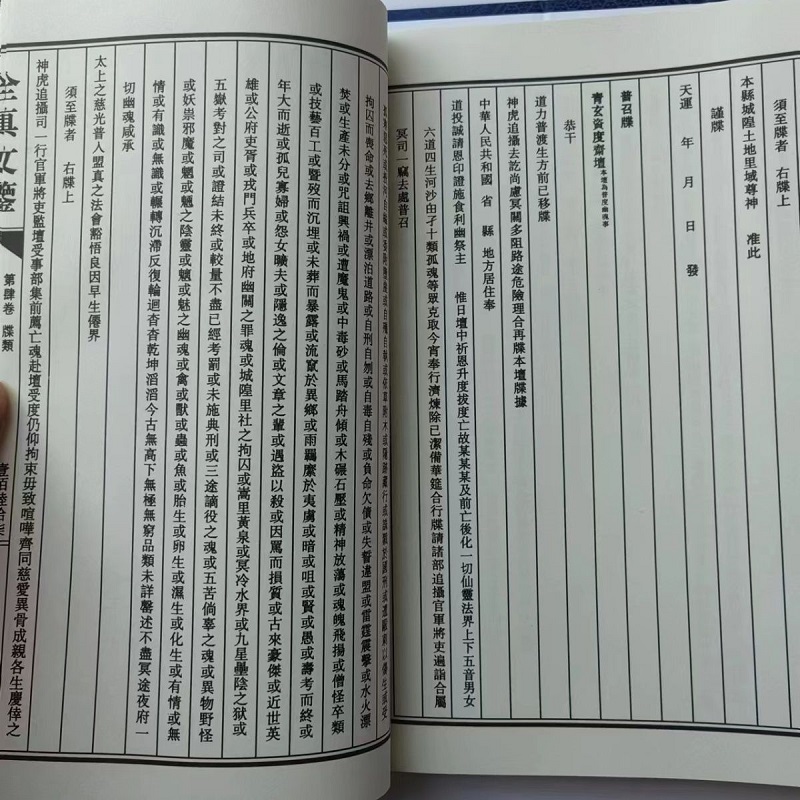 須至牒者　右牒上
本縣城隍土地里域尊神　准此
謹牒
天運　年　月　日　發
普召牒
青玄資度齋壇本壇為普度幽魂事
恭干
道力普渡生方前已移牒
神虎追攝去訖尚慮冥關多阻路途危險理合再牒本壇牒據
中華人民共和國　省　縣　地方居住奉
道投誠請恩印證施食利幽祭主　惟日壇中祈恩升度拔度亡故某某某及前亡後化一切仙靈法界上下五音男女
六道四生河沙由子十類孤魂等眾克取今宵奉行濟煉除已潔備華筵合行牒請諸部追攝官軍將吏遍詣合屬
冥司一竅去處普召
拘囚而喪命或去鄉離井或漂泊道路或自刑自刎或自毒自殘或負命欠債或失誓違盟或雷霆震擊或水火漂
焚或生產未分或咒詛興禍或遭魔鬼或中毒砂或馬踏舟傾或木碾石壓或精神放蕩或魂魄飛揚或僧怪卒類
或技藝百工或暨歿而沉埋或未葬而暴露或流竄於異鄉或雨羈縻於夷虜或暗或咀或賢或愚或壽考而終或
年大而逝或孤兒寡婦或怨女曠夫或隱逸之倫或文章之輩或遇盜以殺或因罵而損質或古來豪傑或近世英
雄或公府吏胥或戎門兵卒或地府幽關之罪魂或城隍里社之拘囚或嵩里黃泉或冥冷水界或九星壘陰之獄或
五嶽考對之司或證結未終或較量不盡已經考罰或未施典刑或三途謫役之魂或五苦倘辜之魂或異物野怪
或妖祟邪魔或魍或魎之陰靈或魑或魅之幽魂或禽或獸或蟲或魚或胎生或卵生或濕生或化生或有情或無
情或有識或無識或輾轉沉滯反復輪迴杳杳乾坤滔滔今古無高下無極無窮品類未詳罄述不盡冥途夜府一
切幽魂咸承
太上之慈光普人盟真之法會豁悟良因早生僊界
須至牒者　右牒上
神虎追攝司一行官軍將吏監壇受事部集前薦亡魂赴壇受度仍仰拘束毋致喧嘩齊同慈愛異骨成親各生慶倖之
全真文鑒
第肆卷　牒類
壹佰陸拾柒